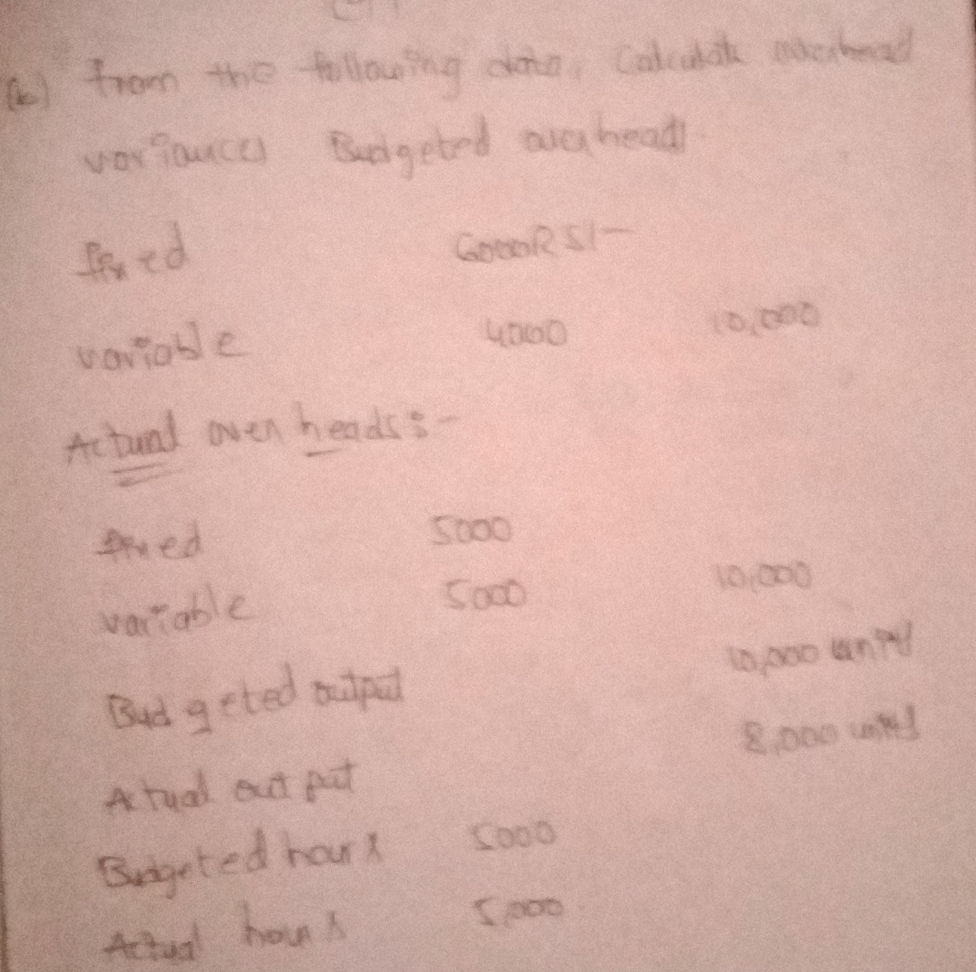 (b) From the following data, Calculate overhead
variances Budgeted overheads.
fixed 6000RS/-
variable 4000 10,000
Actual over heads:-
fixed 5000
variable 5000 10,000
Budgeted output 10,000 units
Actual out put 8,000 units
Budgeted hours 5000
Actual hours 5,000